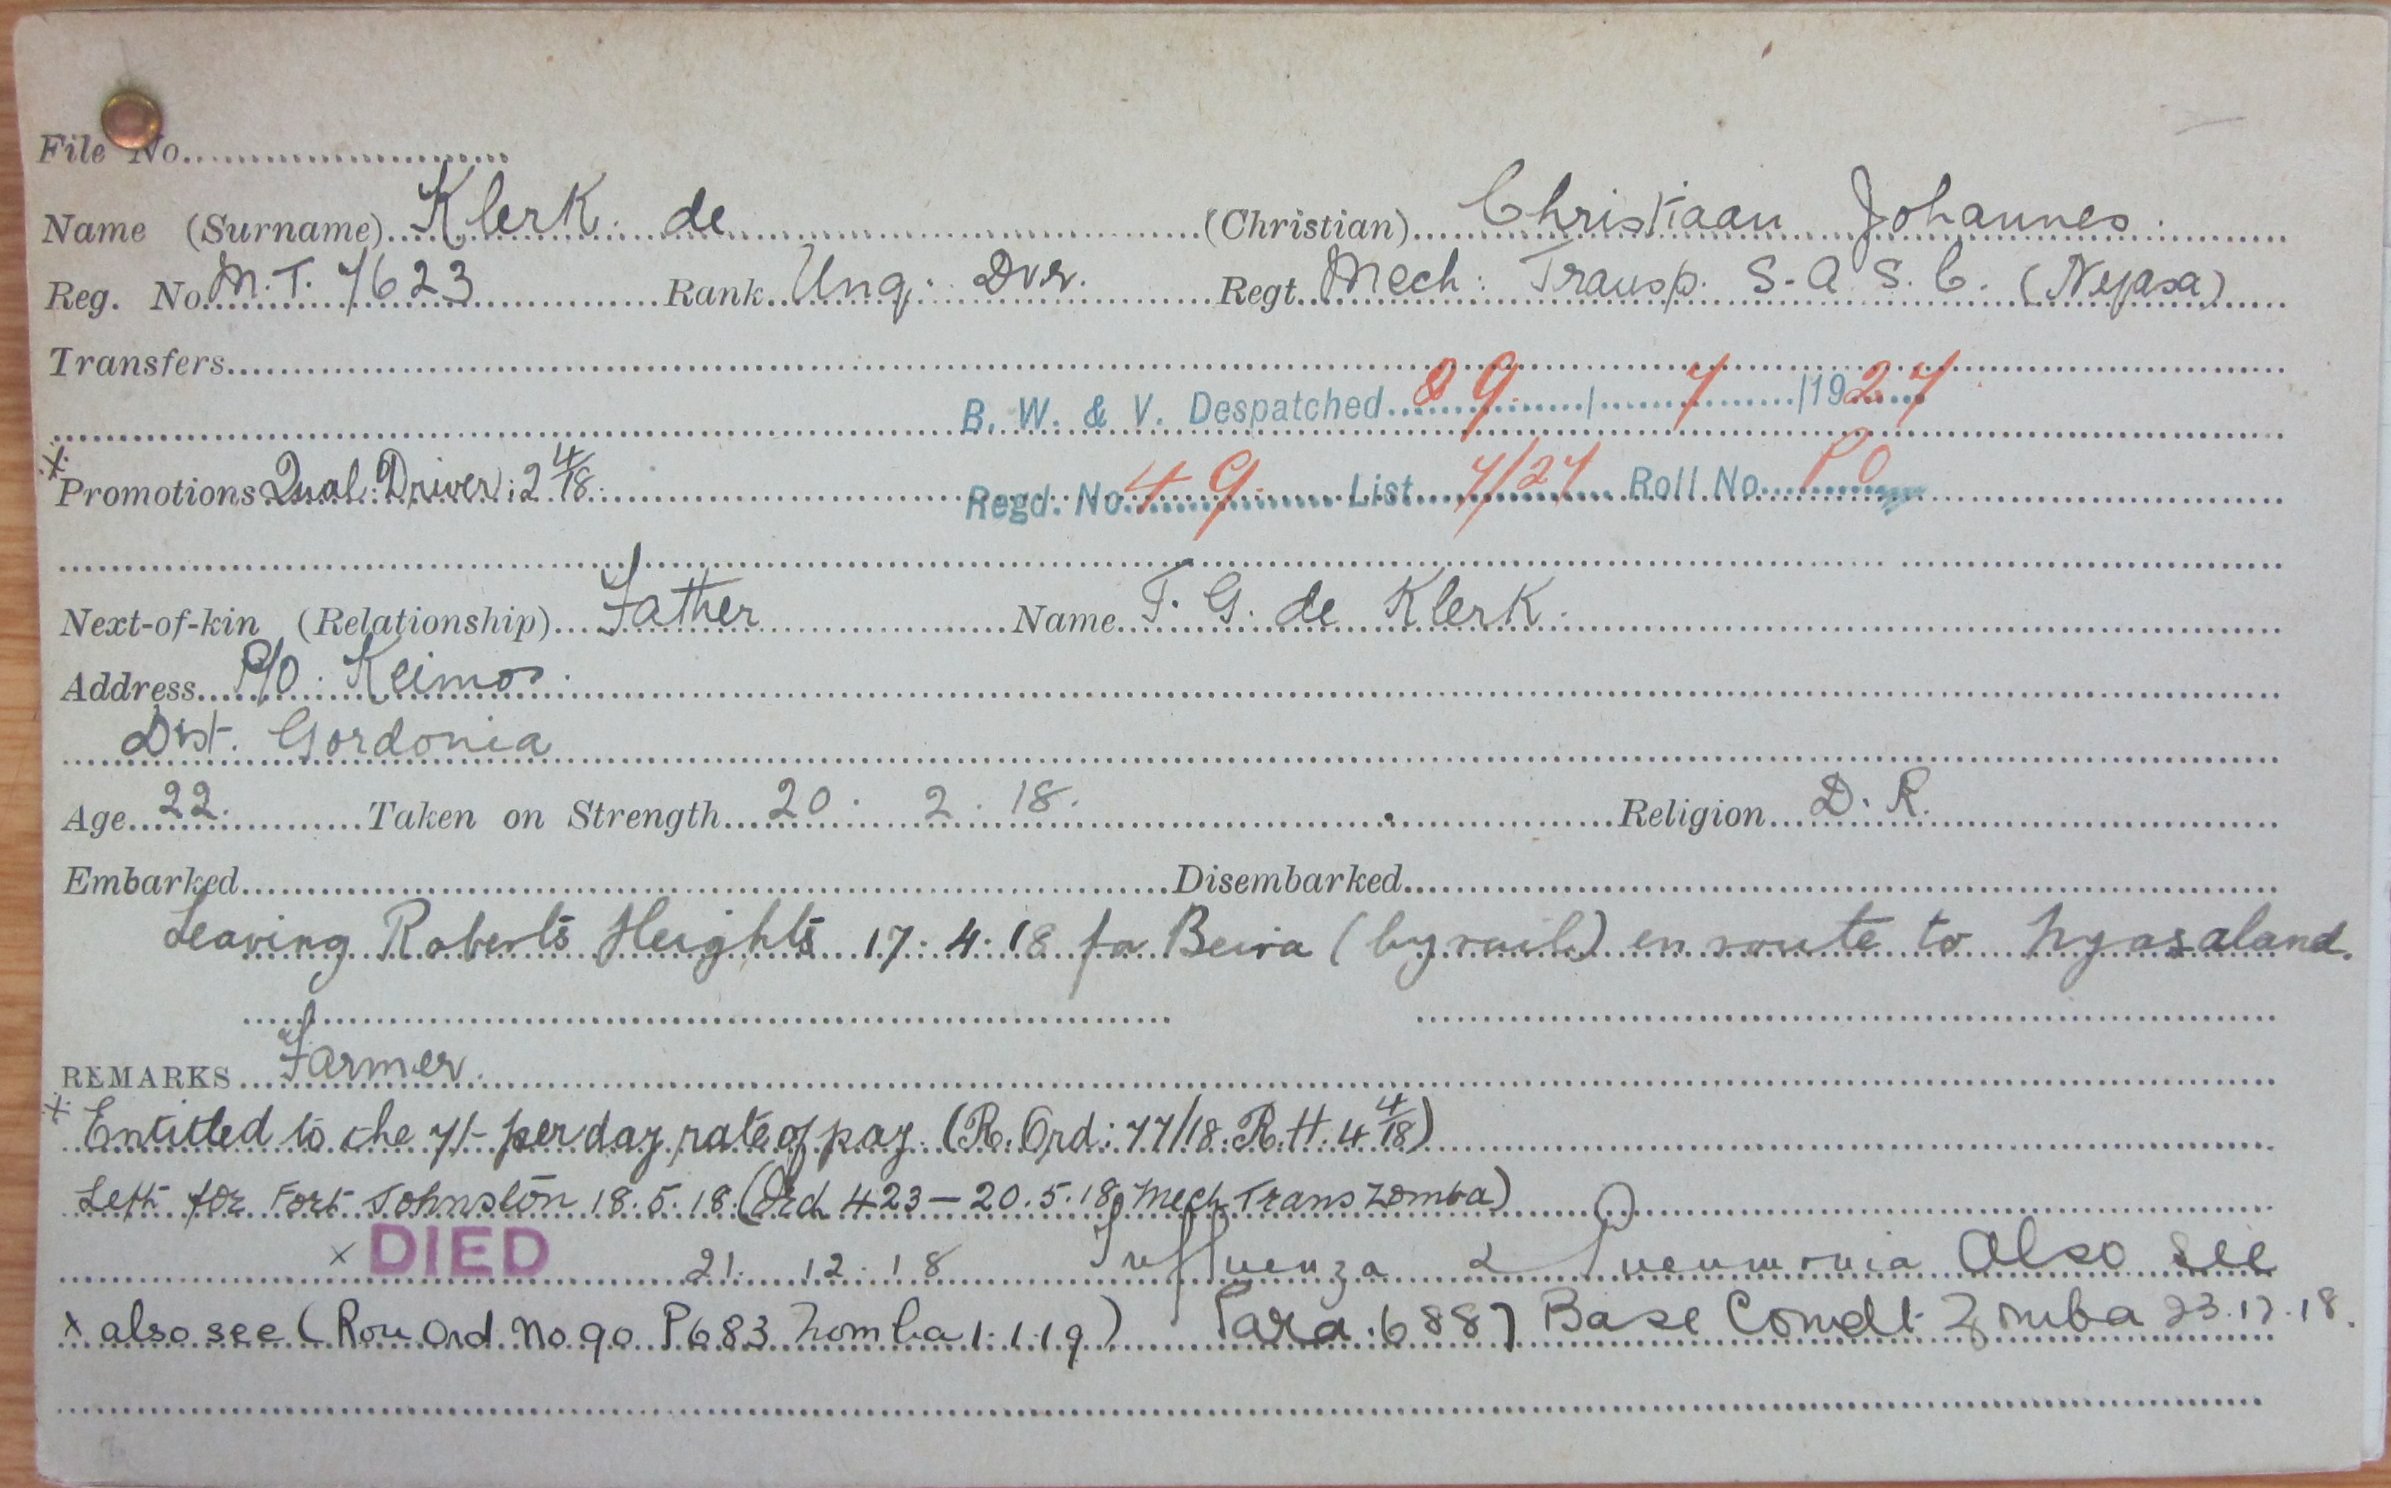 File No
Name (Surname) Klerk. de (Christian) Christiaan Johannes.
Reg. No. M.T. 7623 Rank Unq. Dvr. Regt. Mech: Transp. S.A.S.C. (Nyasa)
Transfers
B. W. & V. Despatched 9 / 7 /1927
x Promotions Qual: Driver: 2 4/18. Regd. No. 49. List 7/27 Roll No.
Next-of-kin (Relationship) Father Name T. G. de Klerk.
Address P/O. Keimos.
Dist. Gordonia
Age 22. Taken on Strength 20. 2. 18. Religion D. R.
Embarked Disembarked
Leaving Roberts Heights 17.4.18 for Beira (by rail) en route to Nyasaland.
REMARKS Farmer.
x Entitled to the 7/- per day rate of pay. (R. Ord: 77/18. R.H. 4 4/18)
Left for Fort Johnston 18.5.18. (Ord 423 — 20.5.18 Mech Trans Zomba)
x DIED 21. 12. 18 Influenza & Pneumonia Also see
x also see (Rou Ord. No 90 P683 Zomba 1.1.19) Para. 6887 Base Comdt Zomba 23.12.18.